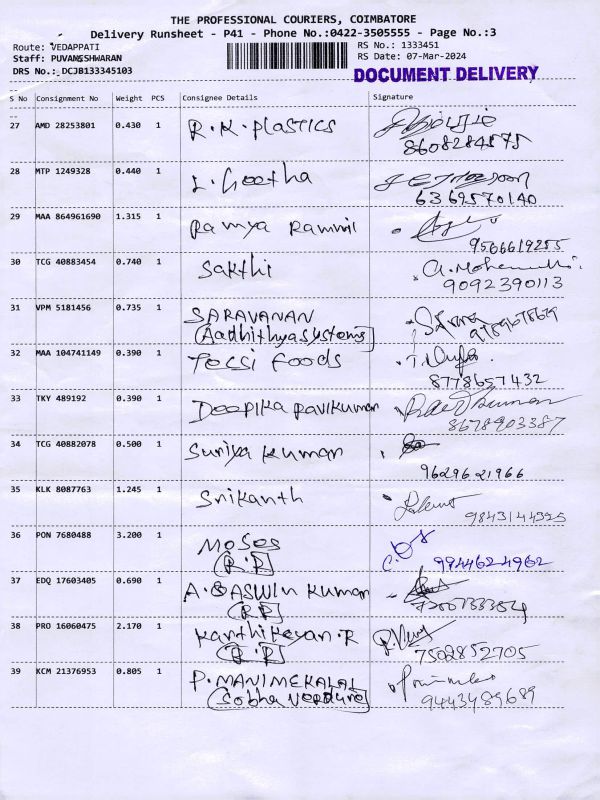 THE PROFESSIONAL COURIERS, COIMBATORE
Delivery Runsheet - P41 - Phone No.:0422-3505555 - Page No.:3
Route: VEDAPPATI
Staff: PUVANESHWARAN
DRS No.: DCJB133345103
RS No.: 1333451
RS Date: 07-Mar-2024
DOCUMENT DELIVERY
S No Consignment No Weight PCS Consignee Details Signature
27 AMD 28253801 0.430 1 R.K.Plastics
8608284575
28 MTP 1249328 0.440 1 L.Geetha
6369570140
29 MAA 864961690 1.315 1 Ramya
9566619255
30 TCG 40883454 0.740 1 Sakthi
9092390113
31 VPM 5181456 0.735 1 SARAVANAN
(Aadhithya systems)
32 MAA 104741149 0.390 1 Tecsi foods
8778657432
33 TKY 489192 0.390 1 Deepika Ravikumar
8678903387
34 TCG 40882078 0.500 1 Suriya Kumar
9629621966
35 KLK 8087763 1.245 1 Srikanth
9843144325
36 PON 7680488 3.200 1 Moses
(R.P) 9944624962
37 EDQ 17603405 0.690 1 A.S ASWIN Kumar
(R.P)
38 PRO 16060475 2.170 1 Karthikeyan.R
(R.P) 7502852705
39 KCM 21376953 0.805 1 P.MANIMEKALAI
(Sobha verdure) 9443489689